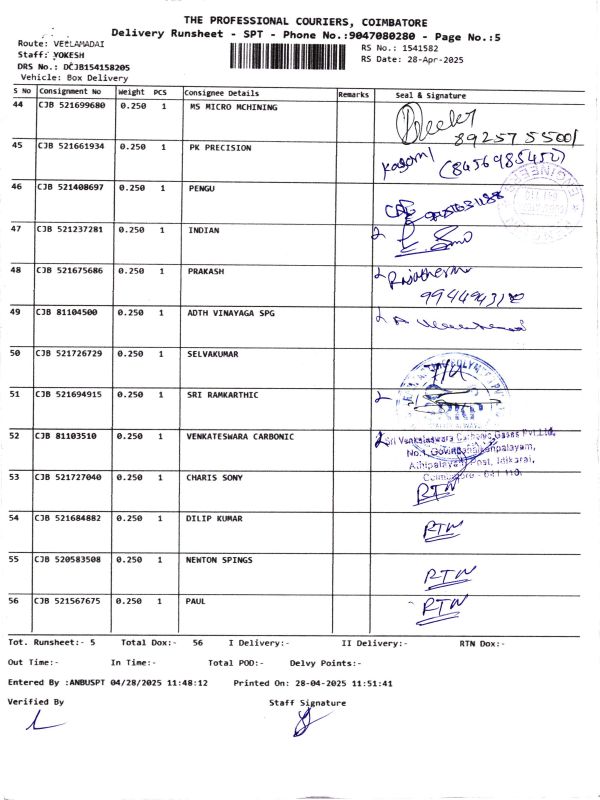 THE PROFESSIONAL COURIERS, COIMBATORE
Delivery Runsheet - SPT - Phone No.:9047080280 - Page No.:5
Route: VEELAMADAI
RS No.: 1541582
Staff: YOKESH
RS Date: 28-Apr-2025
DRS No.: DCJB154158205
Vehicle: Box Delivery
S No Consignment No Weight PCS Consignee Details Remarks Seal & Signature
44 CJB 521699680 0.250 1 MS MICRO MCHINING
8925755001
45 CJB 521661934 0.250 1 PK PRECISION
(8456985452)
46 CJB 521408697 0.250 1 PENGU
47 CJB 521237281 0.250 1 INDIAN
48 CJB 521675686 0.250 1 PRAKASH
49 CJB 81104500 0.250 1 ADTH VINAYAGA SPG
50 CJB 521726729 0.250 1 SELVAKUMAR
51 CJB 521694915 0.250 1 SRI RAMKARTHIC
52 CJB 81103510 0.250 1 VENKATESWARA CARBONIC
Sri Venkateswara Carbonic Gases Pvt.Ltd,
No.1, Govindanaickenpalayam,
Athipalayam Post, Idikarai,
Coimbatore - 641
53 CJB 521727040 0.250 1 CHARIS SONY RTN
54 CJB 521684882 0.250 1 DILIP KUMAR RTN
55 CJB 520583508 0.250 1 NEWTON SPINGS RTN
56 CJB 521567675 0.250 1 PAUL RTN
Tot. Runsheet:- 5 Total Dox:- 56 I Delivery:- II Delivery:- RTN Dox:-
Out Time:- In Time:- Total POD:- Delvy Points:-
Entered By :ANBUSPT 04/28/2025 11:48:12 Printed On: 28-04-2025 11:51:41
Verified By Staff Signature